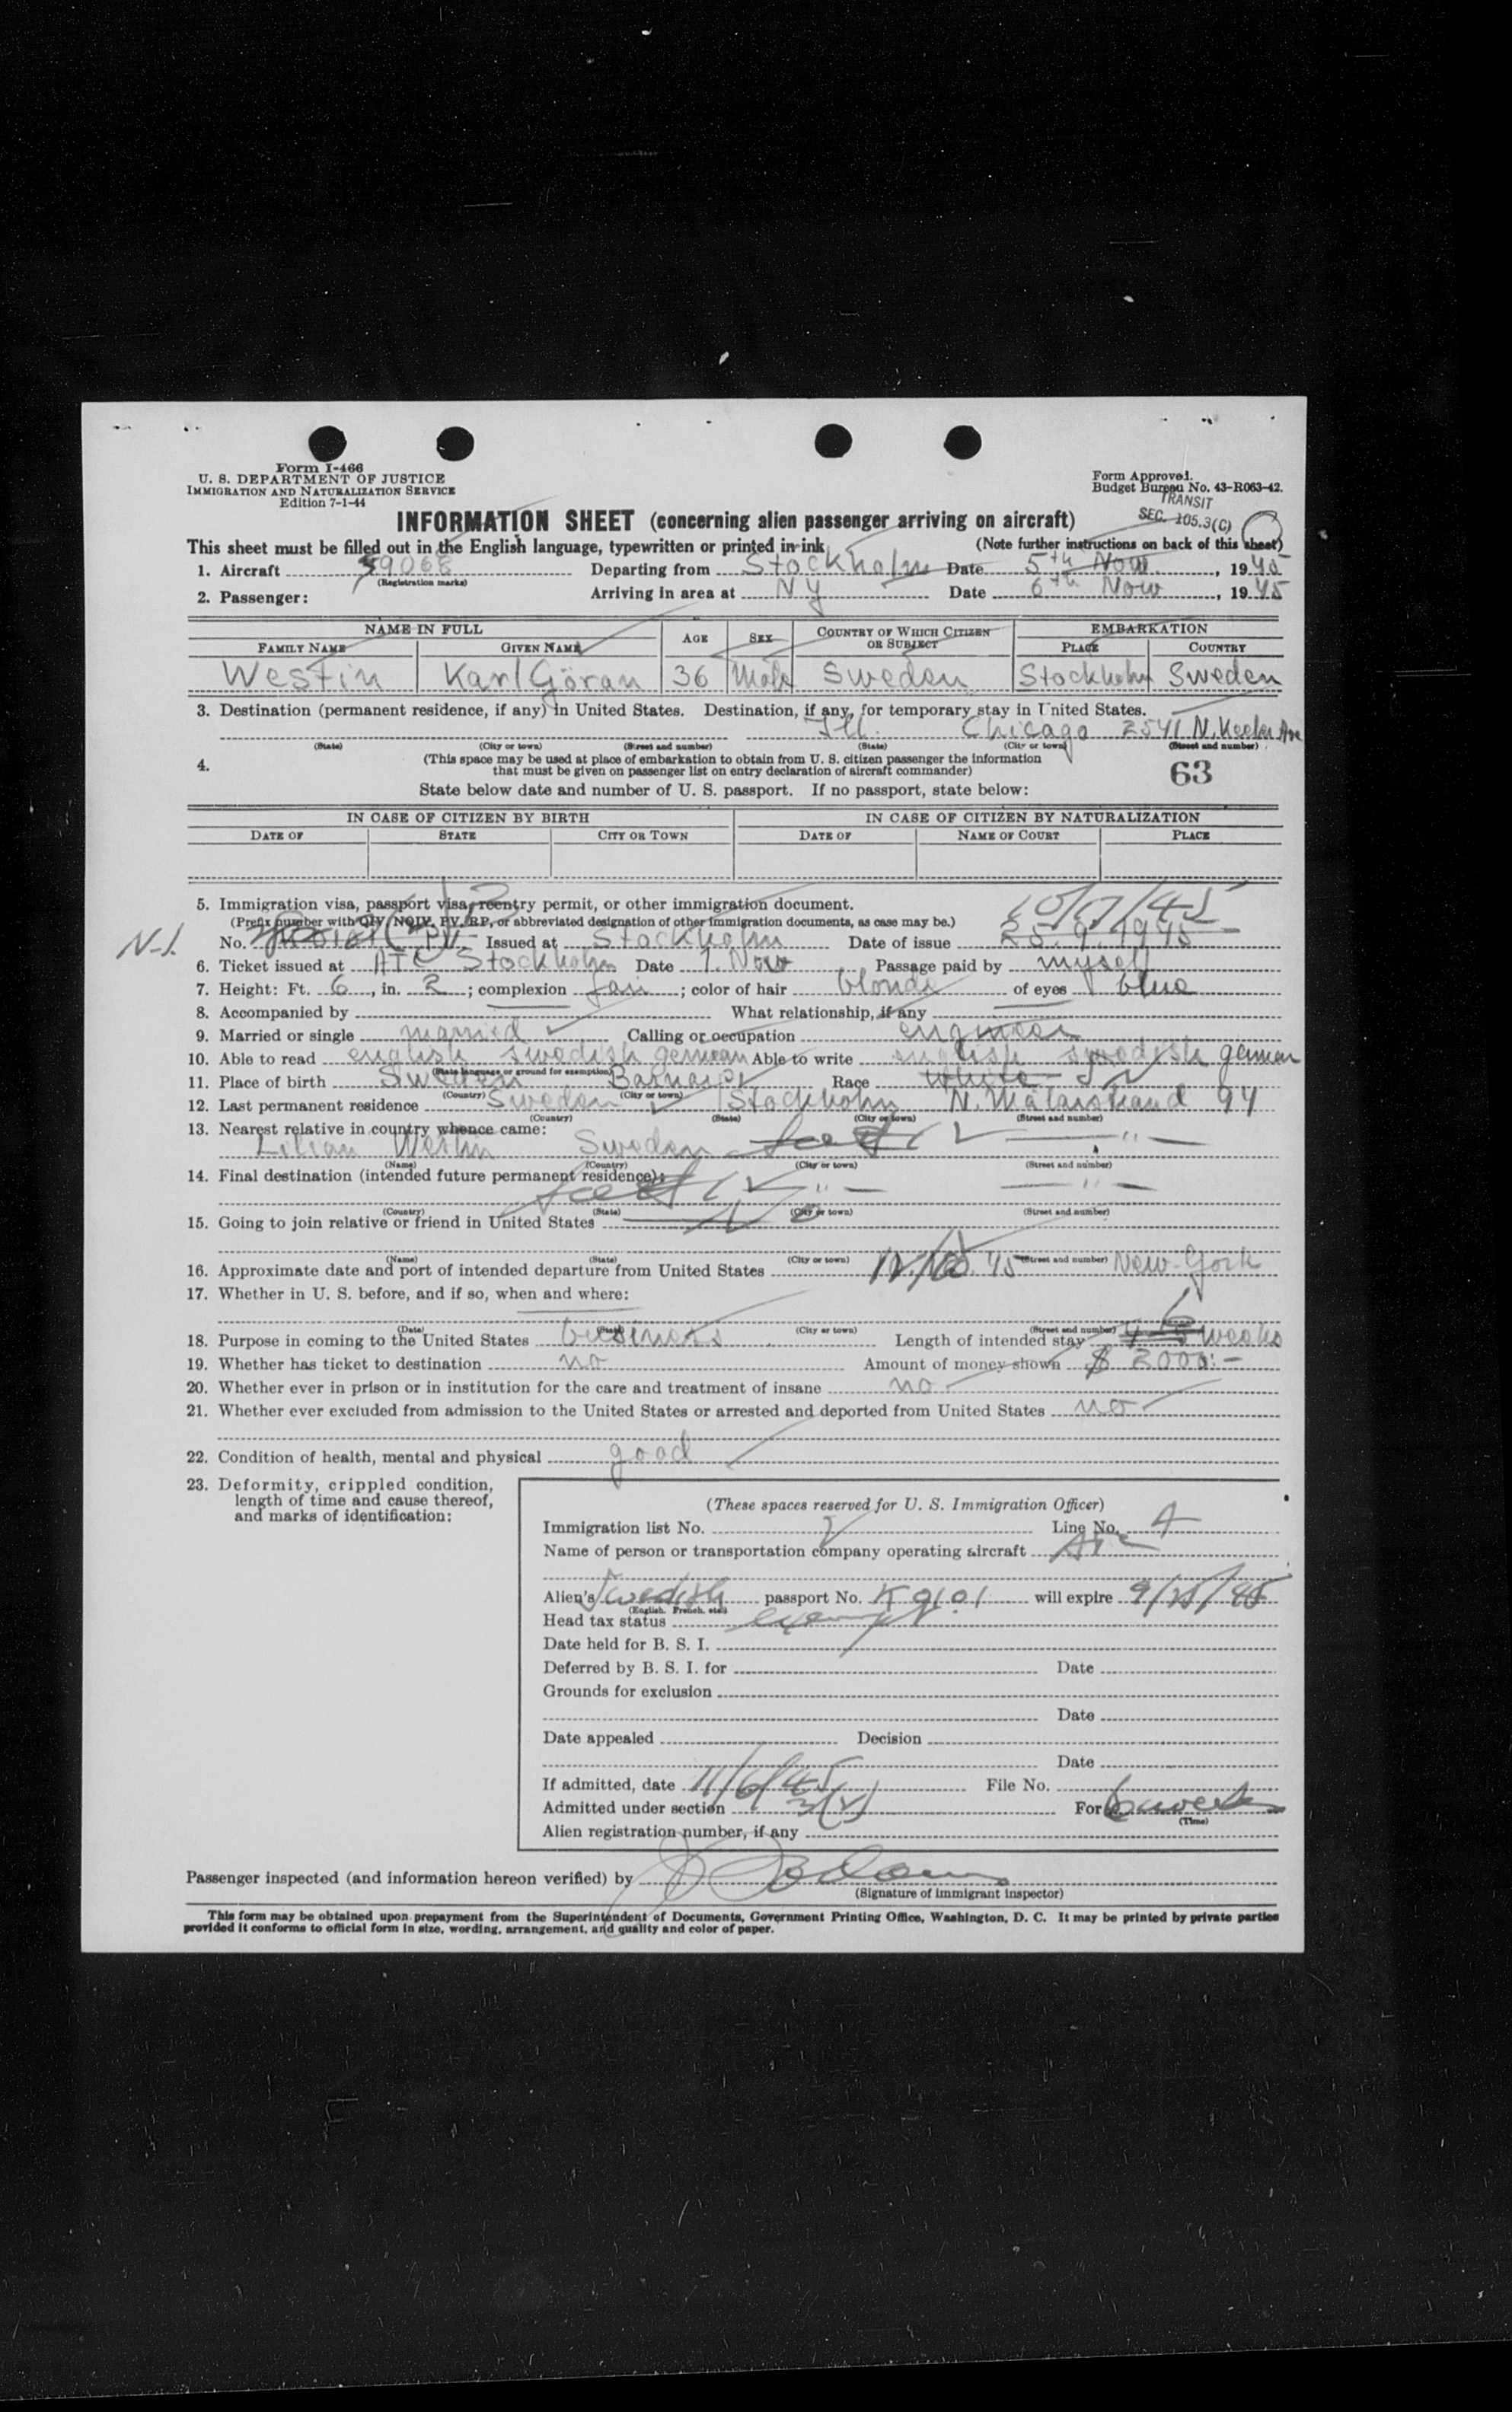 Form I-466
U. S. DEPARTMENT OF JUSTICE
IMMIGRATION AND NATURALIZATION SERVICE
Edition 7-1-44
Form Approved.
Budget Bureau No. 43-R063-42.
TRANSIT
SEC. 105.3(C)
INFORMATION SHEET (concerning alien passenger arriving on aircraft)
This sheet must be filled out in the English language, typewritten or printed in ink
(Note further instructions on back of this sheet)
1. Aircraft 59068 Departing from Stockholm Date 5th Nov. , 1945
(Registration marks)
2. Passenger: Arriving in area at NY Date 6th Nov , 1945
NAME IN FULL AGE SEX COUNTRY OF WHICH CITIZEN OR SUBJECT EMBARKATION
FAMILY NAME GIVEN NAME PLACE COUNTRY
Westin Karl Göran 36 Male Sweden Stockholm Sweden
3. Destination (permanent residence, if any) in United States. Destination, if any, for temporary stay in United States.
Ill. Chicago 2541 N. Keeler Ave
(State) (City or town) (Street and number) (State) (City or town) (Street and number)
4. (This space may be used at place of embarkation to obtain from U. S. citizen passenger the information
that must be given on passenger list on entry declaration of aircraft commander)
63
State below date and number of U. S. passport. If no passport, state below:
IN CASE OF CITIZEN BY BIRTH IN CASE OF CITIZEN BY NATURALIZATION
DATE OF STATE CITY OR TOWN DATE OF NAME OF COURT PLACE
5. Immigration visa, passport visa, reentry permit, or other immigration document.
(Prefix number with QIV, NQIV, PV, RP, or abbreviated designation of other immigration documents, as case may be.)
10/17/45
N-1.
No. PV Issued at Stockholm Date of issue 25.9.1945
6. Ticket issued at ATC Stockholm Date 1. Nov Passage paid by myself
7. Height: Ft. 6, in. 2; complexion fair; color of hair blonde of eyes blue
8. Accompanied by What relationship, if any
9. Married or single married Calling or occupation engineer
10. Able to read english swedish german Able to write english swedish german
(State language or ground for exemption)
11. Place of birth Sweden Race White
(Country) (City or town)
12. Last permanent residence Sweden Stockholm N. Mälarstrand 94
(Country) (State) (City or town) (Street and number)
13. Nearest relative in country whence came:
Lilian Westin Sweden
(Name) (Country) (City or town) (Street and number)
14. Final destination (intended future permanent residence):
(Country) (State) (City or town) (Street and number)
15. Going to join relative or friend in United States No
(Name) (State) (City or town) (Street and number)
16. Approximate date and port of intended departure from United States 45 New York
17. Whether in U. S. before, and if so, when and where:
(Date) (State) (City or town) (Street and number)
18. Purpose in coming to the United States business Length of intended stay 6 weeks
19. Whether has ticket to destination no Amount of money shown $ 2000:-
20. Whether ever in prison or in institution for the care and treatment of insane no
21. Whether ever excluded from admission to the United States or arrested and deported from United States no
22. Condition of health, mental and physical good
23. Deformity, crippled condition,
length of time and cause thereof,
and marks of identification:
(These spaces reserved for U. S. Immigration Officer)
Immigration list No. Line No. 4
Name of person or transportation company operating aircraft ATC
Alien's Swedish passport No. K 9101 will expire 9/25/
(English, French, etc.)
Head tax status exempt
Date held for B. S. I.
Deferred by B. S. I. for Date
Grounds for exclusion
Date
Date appealed Decision
Date
If admitted, date 11/6/45 File No.
Admitted under section 3(2) For 6 weeks
(Time)
Alien registration number, if any
Passenger inspected (and information hereon verified) by
(Signature of immigrant inspector)
This form may be obtained upon prepayment from the Superintendent of Documents, Government Printing Office, Washington, D. C. It may be printed by private parties
provided it conforms to official form in size, wording, arrangement, and quality and color of paper.